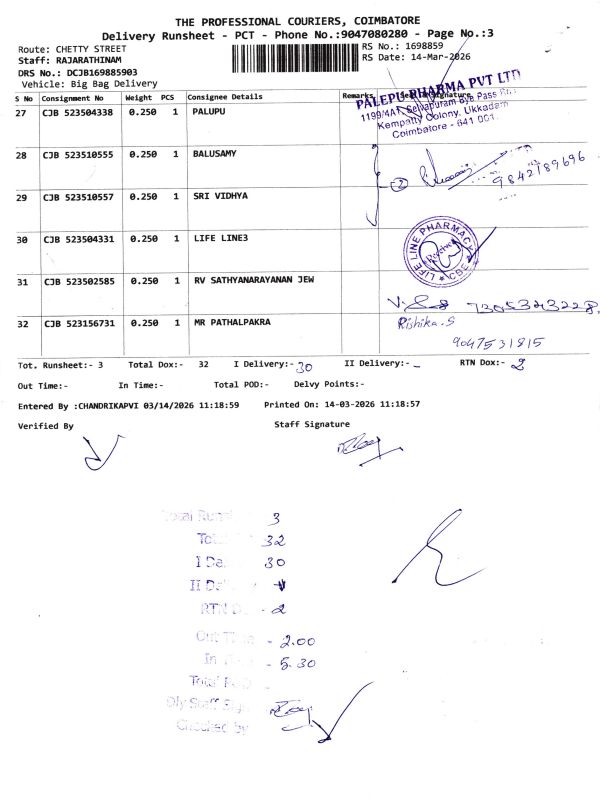 THE PROFESSIONAL COURIERS, COIMBATORE
Delivery Runsheet - PCT - Phone No.:9047080280 - Page No.:3
Route: CHETTY STREET
RS No.: 1698859
Staff: RAJARATHINAM
RS Date: 14-Mar-2026
DRS No.: DCJB169885903
Vehicle: Big Bag Delivery
S No Consignment No Weight PCS Consignee Details Remarks Seal Signature
27 CJB 523504338 0.250 1 PALUPU
PALEPU PHARMA PVT LTD
1199/4A1, Selvapuram Bye Pass
Kempatty Colony, Ukkadam
Coimbatore - 641 001.
28 CJB 523510555 0.250 1 BALUSAMY
2 9842789696
29 CJB 523510557 0.250 1 SRI VIDHYA
30 CJB 523504331 0.250 1 LIFE LINE3
LIFE LINE PHARMACY
Received
CBE
31 CJB 523502585 0.250 1 RV SATHYANARAYANAN JEW
7305343228
32 CJB 523156731 0.250 1 MR PATHALPAKRA
Rishika.S
9047531815
Tot. Runsheet:- 3 Total Dox:- 32 I Delivery:- 30 II Delivery:- - RTN Dox:- 2
Out Time:- In Time:- Total POD:- Delvy Points:-
Entered By :CHANDRIKAPVI 03/14/2026 11:18:59 Printed On: 14-03-2026 11:18:57
Verified By Staff Signature
Total 3
32
I 30
II
RTN - 2
Out - 2.00
In - 5.30
Total
Dly Staff
Checked by